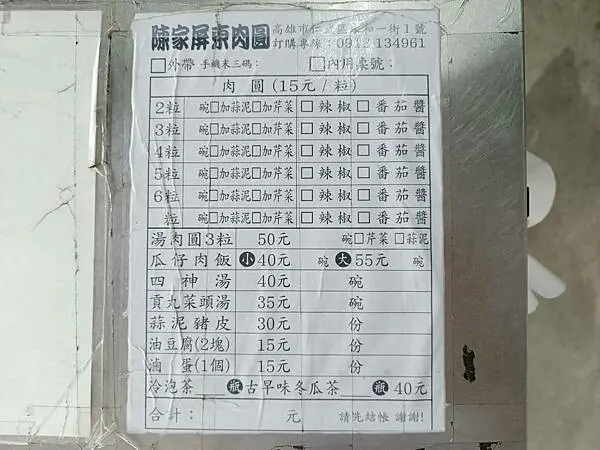 陳家屏東肉圓
高雄市仁武區永和一街1號
訂購專線:0912134961
□外帶 手機末三碼: □內用桌號:
肉圓(15元/粒)
2粒 碗□加蒜泥□加芹菜 □辣椒 □番茄醬
3粒 碗□加蒜泥□加芹菜 □辣椒 □番茄醬
4粒 碗□加蒜泥□加芹菜 □辣椒 □番茄醬
5粒 碗□加蒜泥□加芹菜 □辣椒 □番茄醬
6粒 碗□加蒜泥□加芹菜 □辣椒 □番茄醬
粒 碗□加蒜泥□加芹菜 □辣椒 □番茄醬
湯肉圓3粒 50元 碗□芹菜 □蒜泥
瓜仔肉飯 小40元 碗 大55元 碗
四神湯 40元 碗
貢丸菜頭湯 35元 碗
蒜泥豬皮 30元 份
油豆腐(2塊) 15元 份
滷蛋(1個) 15元 份
冷泡茶 瓶古早味冬瓜茶 瓶40元
合計: 元 請先結帳 謝謝!